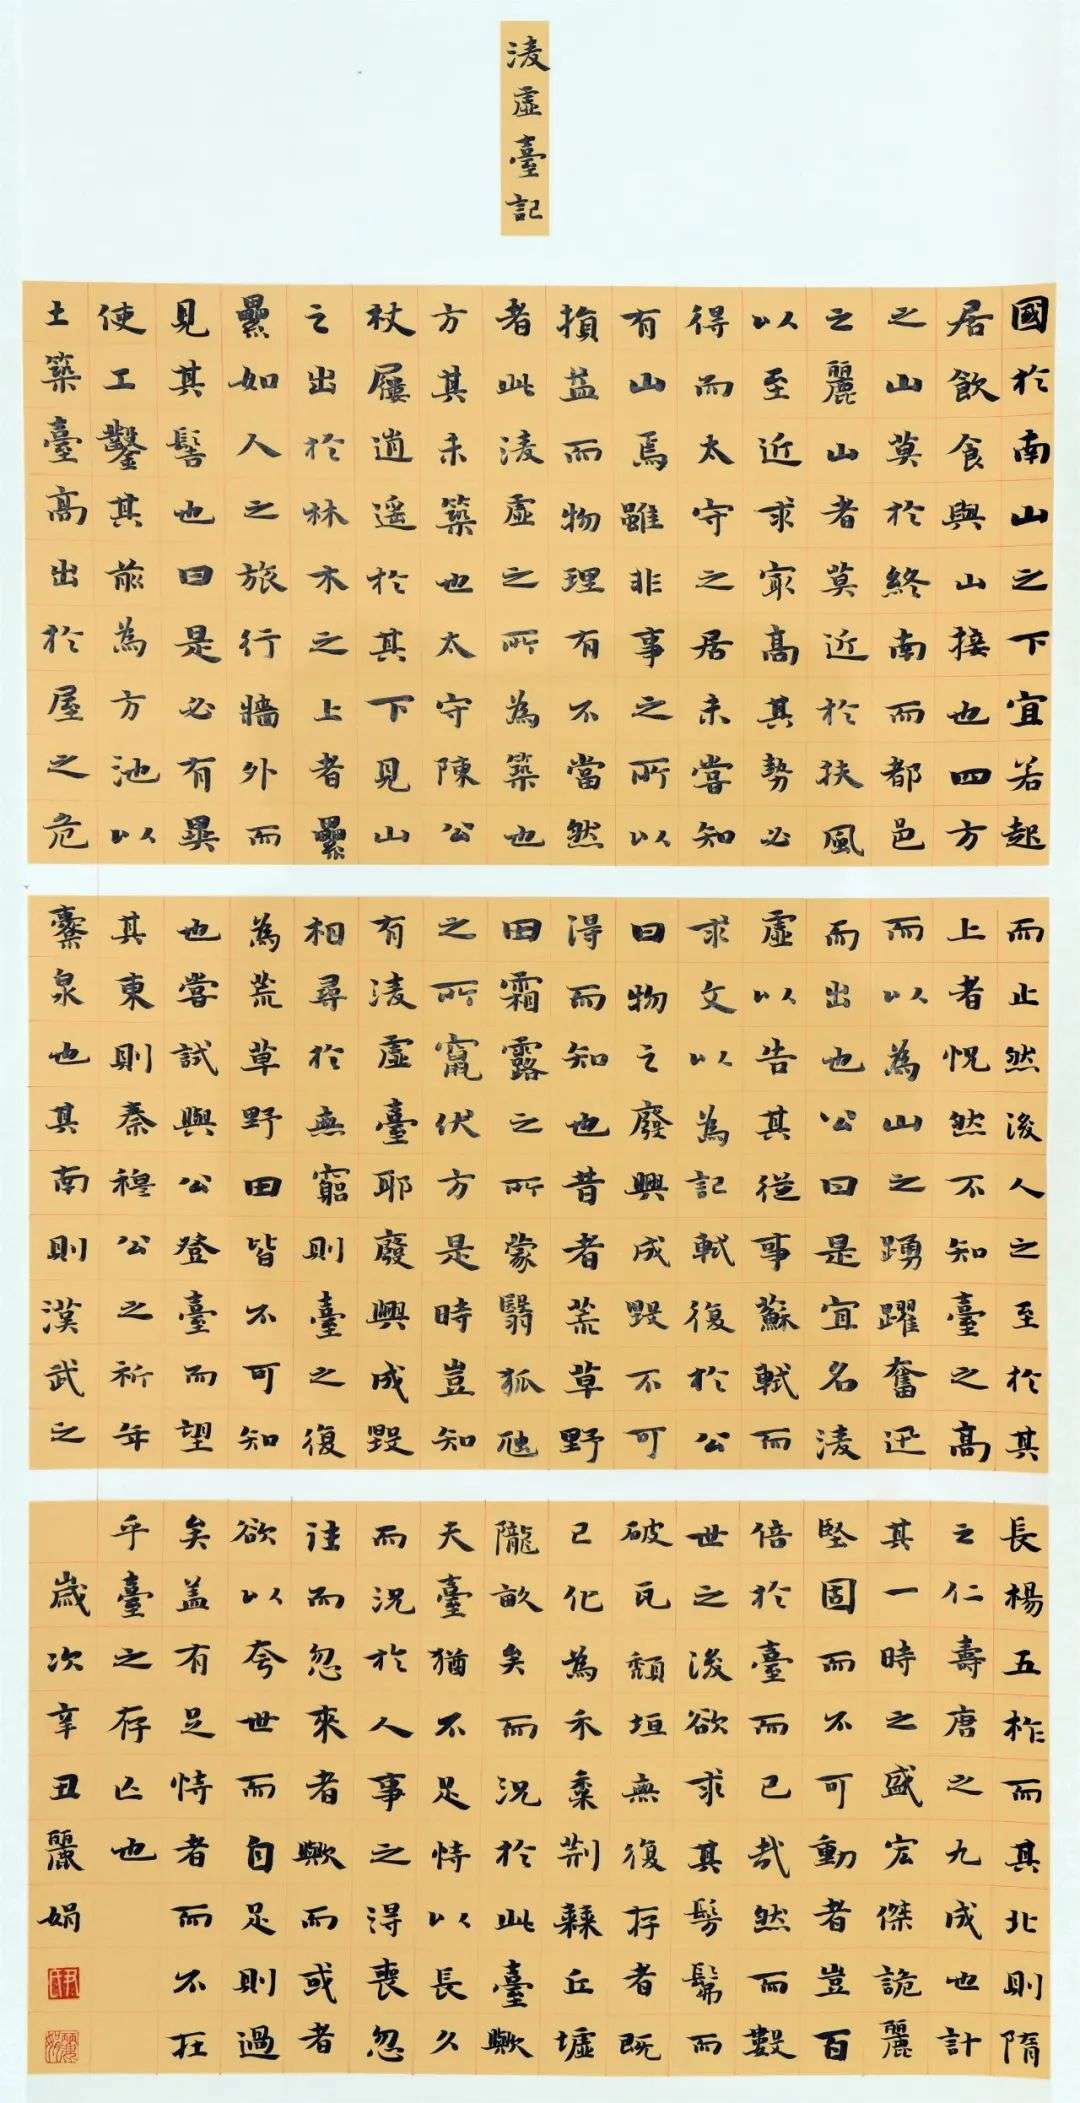 淩虛臺記
國於南山之下宜若起
居飲食與山接也四方
之山莫於終南而都邑
之麗山者莫近於扶風
以至近求冣高其勢必
得而太守之居未嘗知
有山焉雖非事之所以
損益而物理有不當然
者此淩虛之所為築也
方其未築也太守陳公
杖屨逍遥於其下見山
之出於林木之上者纍
纍如人之旅行牆外而
見其髻也曰是必有異
使工鑿其前為方池以
土築臺高出於屋之危
而止然後人之至於其
上者怳然不知臺之高
而以為山之踴躍奮迅
而出也公曰是宜名淩
虛以告其從事蘇軾而
求文以為記軾復於公
曰物之廢興成毀不可
得而知也昔者荒草野
田霜露之所蒙翳狐虺
之所竄伏方是時豈知
有淩虛臺耶廢興成毀
相尋於無窮則臺之復
為荒草野田皆不可知
也嘗試與公登臺而望
其東則秦穆公之祈年
橐泉也其南則漢武之
長楊五柞而其北則隋
之仁壽唐之九成也計
其一時之盛宏傑詭麗
堅固而不可動者豈百
倍於臺而已哉然而數
世之後欲求其髣髴而
破瓦頹垣無復存者既
已化為禾黍荊棘丘墟
隴畝矣而況於此臺歟
夫臺猶不足恃以長久
而況於人事之得喪忽
往而忽來者歟而或者
欲以夸世而自足則過
矣盖有足恃者而不在
乎臺之存亡也
歲次辛丑麗娟
尹氏
麗娟